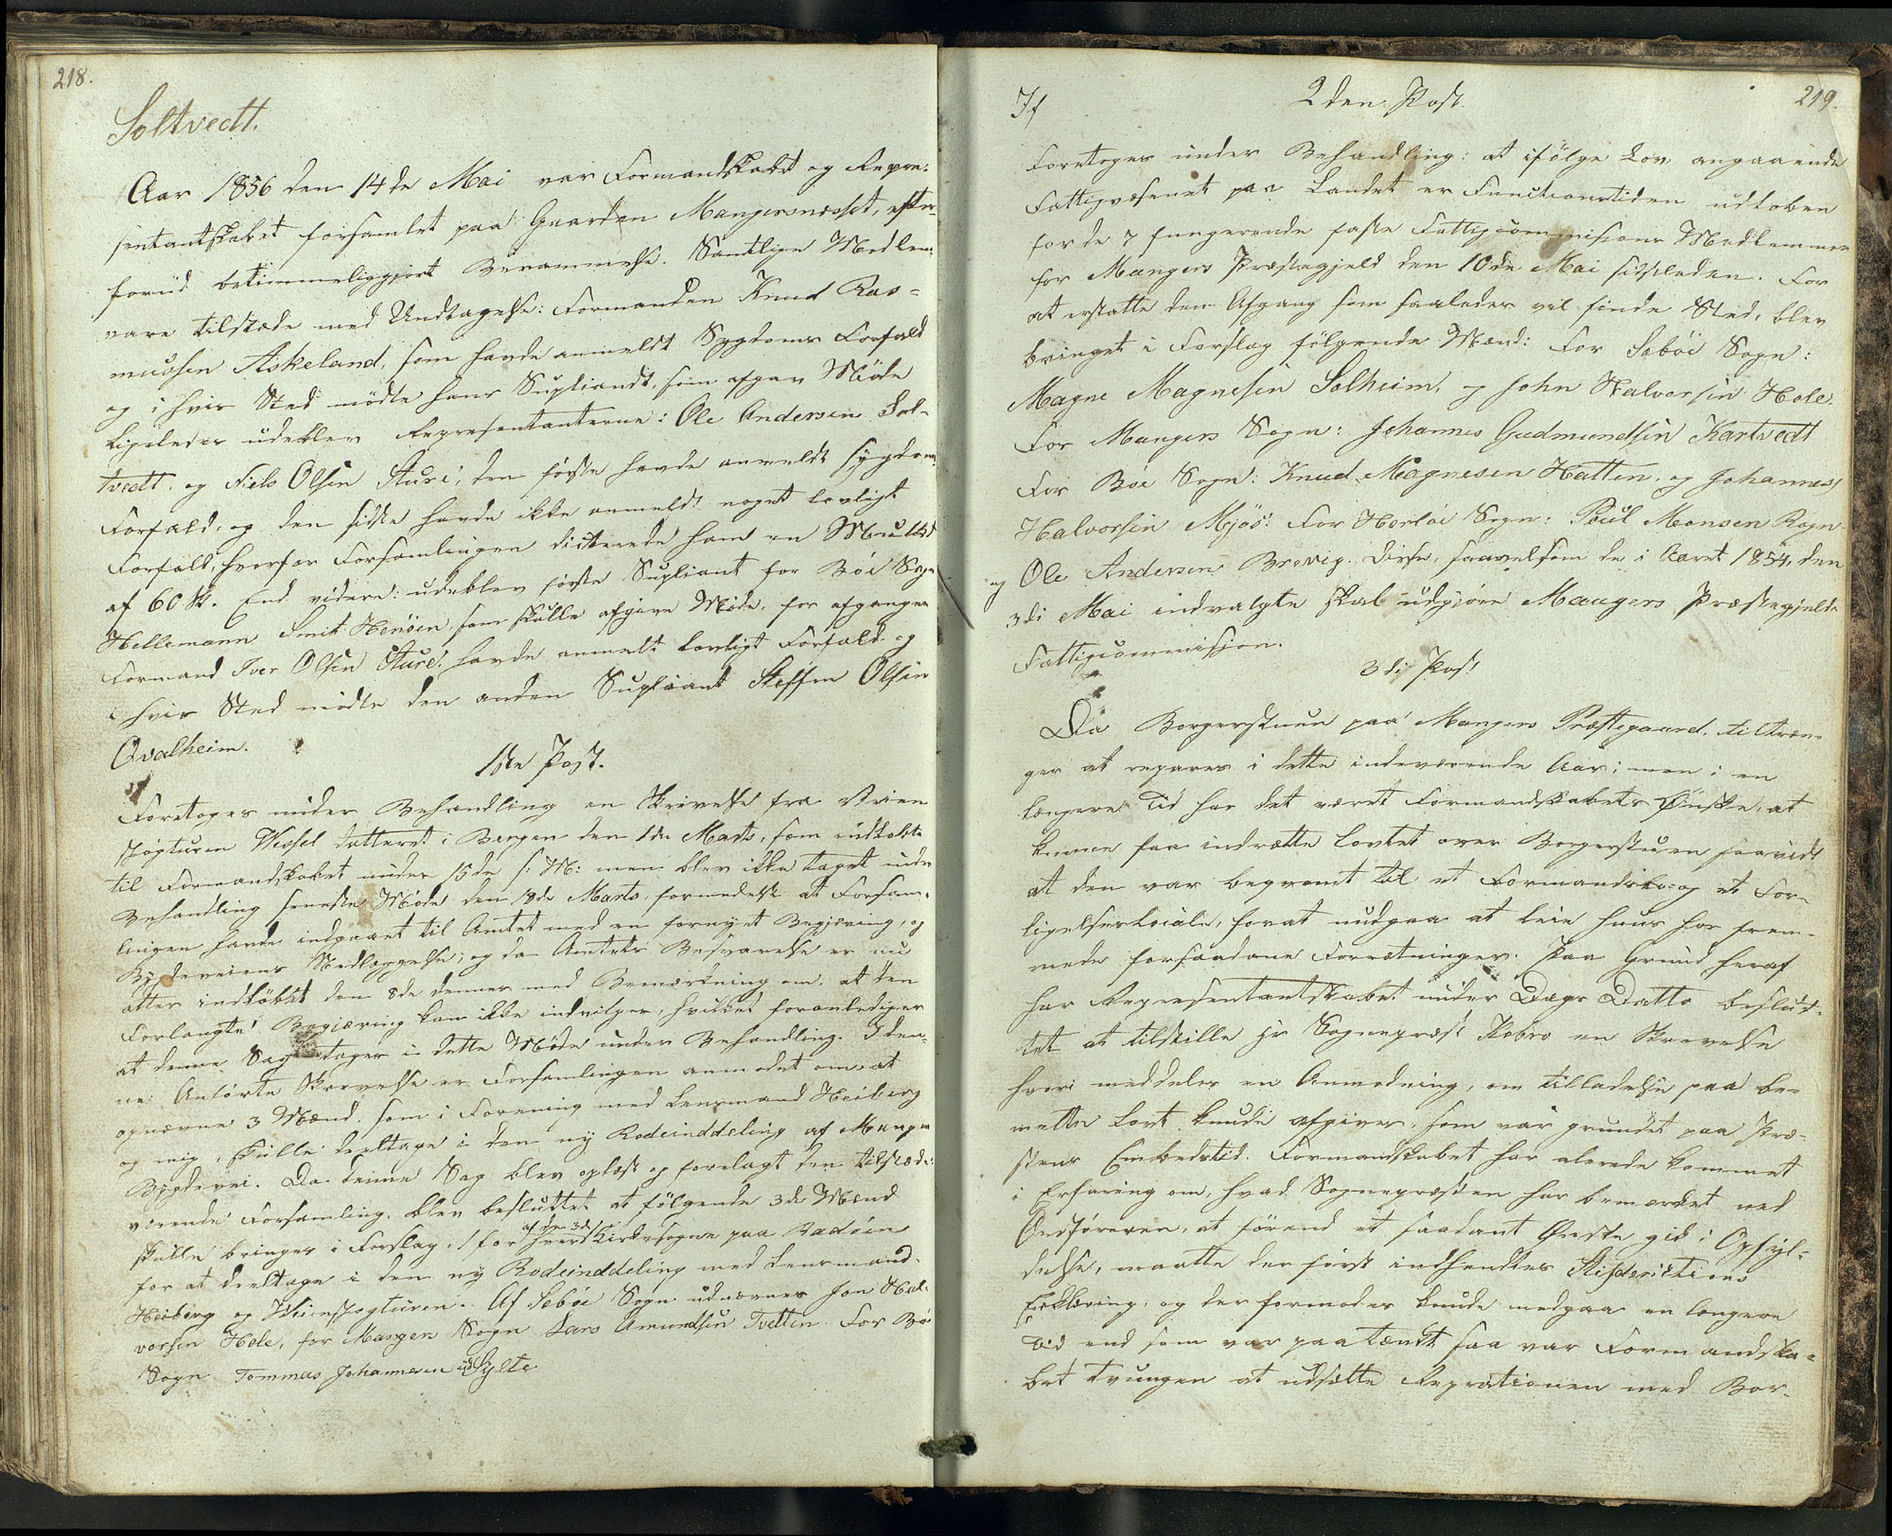 218.
Soltvedt.
Aar 1856 den 14de Mai var Formandskabet og Repre-
sentantskabet forsamlet paa Gaarden Mangersnæsset, efter
forud betimmeliggjort Berammelse. Samtlige Medlem:
vare tilstæde med Undtagelse: Formanden Knud Ras-
mussen Askeland, som havde anmeldt Sygdoms Forfald
og i hvis Sted mødte hans Supliandt, som afgav Møde
Ligeledes udeblev Representanterne: Ole Andersen Sol-
tvedt, og Niels Olsen Sture, den første havde anmeldt Sygdoms
Forfald, og den sidste havde ikke anmeldt noget lovligt
Forfald, hvorfor Forsamlingen dicterede ham en Mulkt
af 60 s. End videre: udeblev første Supliant for Bøe Sogn
Hellemann Smit Henöen, som skulle afgive Møde, for afgangne
Formand Iver Olsen Sture, havde anmeldt lovligt Forfald og
i hvis Sted mödte den anden Supliant Steffen Olsen
Qvalheim.
1ste Post.
Foretoges under Behandling en Skrivelse fra Veien
spögturen Wessel datteret i Bergen den 1de Marts, som indkobte
til Formandskabet under 15de s: M: men blev ikke taget under
Behandling seneste Møde den 18de Marts, formedelst at Forsam-
lingen havde indgaaet til Amtet med en fornyet Begjæring, og
Bygdeveiens Nedlæggelse; og da Amtets Besvarelse er nu
atter indløbet den 8de dennes med Bemærkning om, at den
Forlangte Begjæring kan ikke indvilges, hvilket foranlediger
at denne Sag tages i dette Møde under Behandling. I den-
ne Anførte Skrivelse er Forsamlingen anmodet om, at
opnævne 3 Mænd, som i Forening med Lensmand Heiberg
og mig, skulle deeltage i den ny Rodeinddeling af Manger
Bygdevei. Da denne Sag blev oplæst og forelagt den tilstæde-
værende Forsamling, blev besluttet at følgende 3de Mænd
af de 3de
skulle bringes i Forslag, 1 for hverd Kirkesogne paa Radöen
for at deeltage i den ny Rodeinddeling med Lensmand
Heiberg og Veiinspegturen. Af Sebøe Sogn udnævnes Jon Hal-
vorsen Hole, for Mangers Sogn Lars Amundsen Tvetten. For Bø
Sogn Tommas Johannesen Sylte
219.
2den Post.
Foretoges under Behandling: at ifölge Lov angaaende
Fattigvæsenet paa Landet er Functionstiden udloben
for de 7 fungerende faste Fattigcommissions Medlemmer
for Mangers Præstegjeld den 10de Mai sidstleden. For
at erstatte den Afgang som saaledes vil finde Sted, blev
bringet i Forslag følgende Mænd: For Sæbøe Sogn:
Magne Magnesen Solheim, og John Halvorsen Hole.
For Mangers Sogn: Johannes Gudmundsen Kartvedt
For Bøe Sogn: Knud Magnesen Hatten, og Johannes
Halvorsen Mjøs. For Herløe Sogn: Poul Monsen Rogn
og Ole Andersen Brevig. Disse, saavelsom de i Aaret 1854, den
3de Mai indvalgte skal udgjøre Mangers Præstegjelds
Fattigcommission.
3de Post
Da Borgerstuen paa Mangers Præstegaard, tiltræn-
ger at repares i dette indeværende Aar; men i en
længere Tid har det været Formandskabets Ønske, at
kunne faa indrætte Lovtet over Borgerstuen saavidt
at den var beqvemt til et Formandsko- og et For-
ligelses Locale, forat undgaa at leie huus hos frem-
mede forsaadane Forrætninger. Paa Grund heraf
har Representantskabet under Dags Datto beslut-
tet at tilstille Hr Sognepræst Kobro en Skrevelse
hvori meddeles en Anmodning, om Tilladelse paa be-
meldte Lovt kunde afgives, som var grundet paa Præ-
stens Embedstid. Formandskabet har alerede kommet
i Erfaring om, hvad Sognepræsten har bemærket ved
Ordføreren, at förend et saadant Ønske gik i Opfyl-
delse, maatte der først indhendtes Stifdericktions
Erklæring, og der formodes kunde medgaa en længere
Tid end som var paatænkt saa var Formandska-
bet tvungen at udsætte Reprationen med Bor-